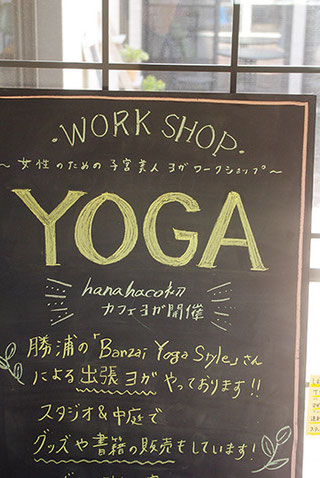 ・WORK SHOP・
～女性のための子宮美人ヨガワークショップ～
YOGA
hanahaco初
カフェヨガ開催
勝浦の「Banzai Yoga Style」さん
による出張ヨガやっております!!
スタジオ&中庭で
グッズや書籍の販売もしています!